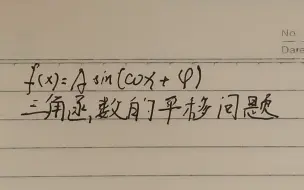 No
Date
f(x)=A sin(ωx+φ)
三角函数的平移问题